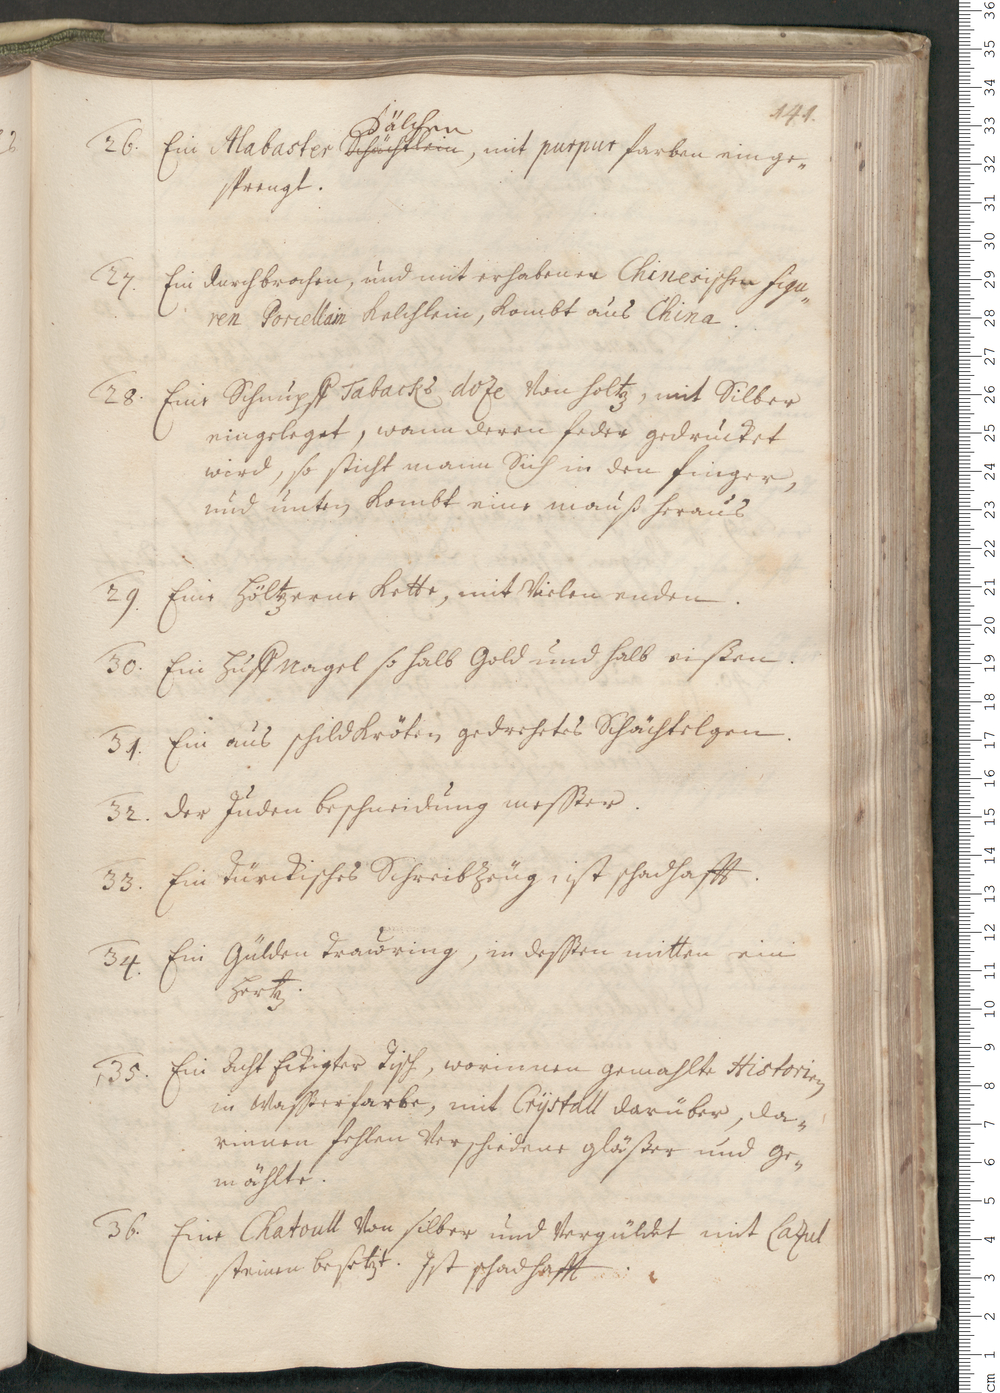 141.
Sälchen
26. Ein Alabaster Schächtlein, mit purpur farben einge„
sprengt.
27. Ein durchbrochen, und mit erhabenen Chinesischen figu„
ren Porcellain Kelchlein, kombt aus China.
28. Eine Schnupff Tabacks doße von holtz, mit Silber
eingeleget, wann deren feder gedrücket
wird, so sticht mann Sich in den finger,
und unten kombt eine mauß heraus
29. Eine höltzerne Kette, mit vielen enden.
30. Ein Huffnagel so halb Gold und halb eißen.
31. Ein aus schildkröten gedrehetes Schächtelgen.
32. der Juden beschneidung messer.
33. Ein türckisches Schreibzeüg, ist schadhafft.
34. Ein Gülden trauring, in dessen mitten ein
hertz.
35. Ein acht Eckigter Tisch, worinnen gemahlte Historien
in Wasserfarbe, mit Crÿstall darüber, da„
rinnen fehlen verschiedene gläßer und ge„
mählte.
36. Eine Chatoull von silber und vergüldet mit Lazul
steinen besetzt. Ist schadhafft.
36
35
34
33
32
31
30
29
28
27
26
25
24
23
22
21
20
19
18
17
16
15
14
13
12
11
10
9
8
7
6
5
4
3
2
1
cm